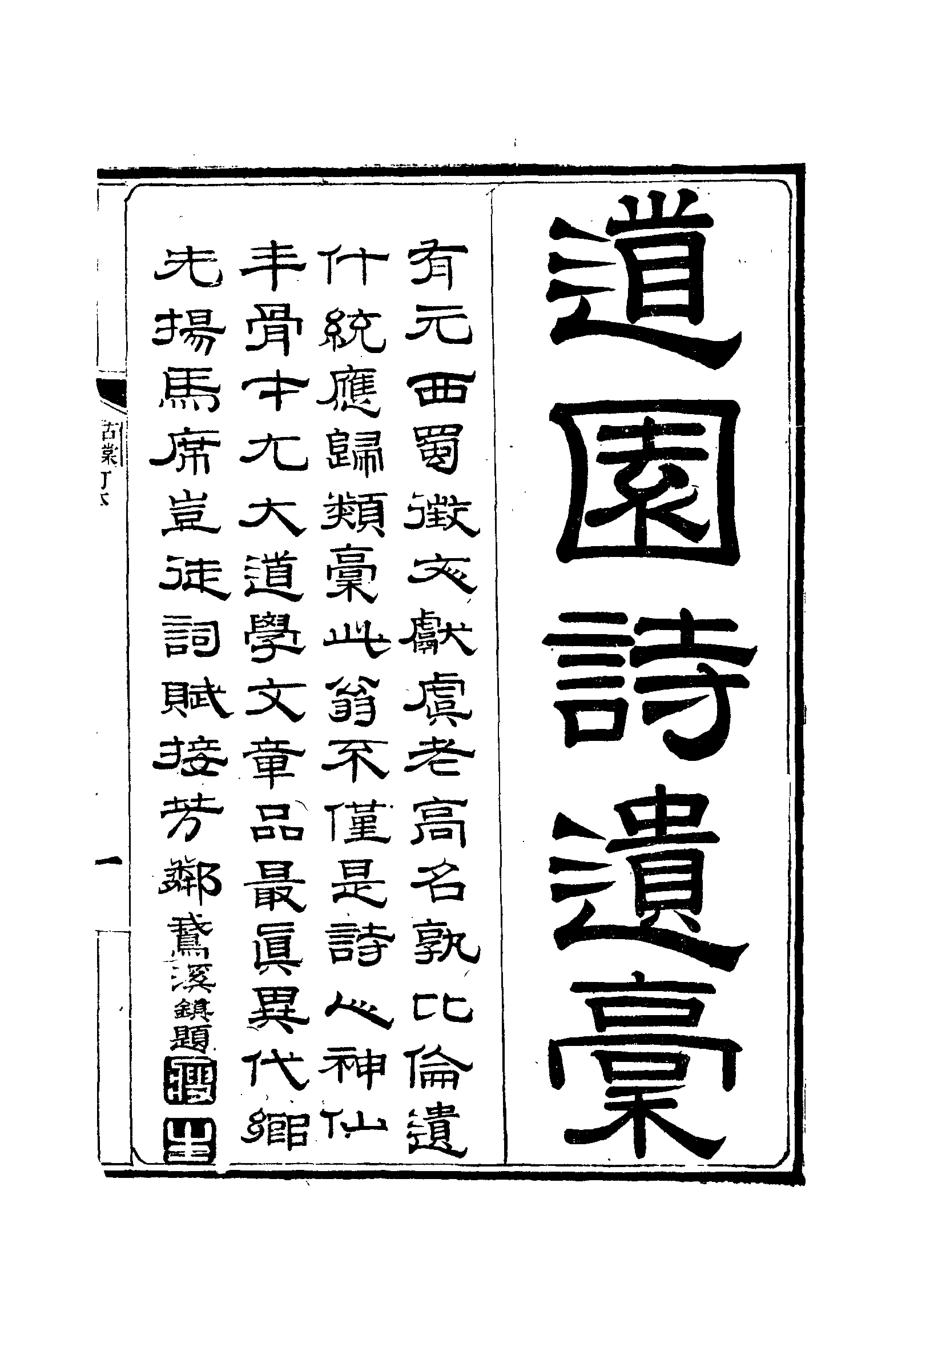 道園詩遺稾
有元西蜀徵文獻虞老高名孰比倫遺
什統應歸類稾此翁不僅是詩心神仙
丰骨才尤大道學文章品最眞異代鄉
先揚馬席豈徒詞賦接芳鄰鵞溪鎮題
古棠丁本
一